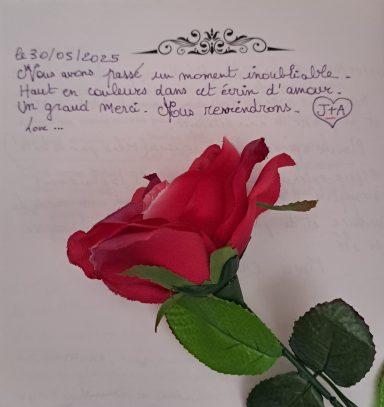 le 30/05/2025
Nous avons passé un moment inoubliable.
Haut en couleurs dans cet écrin d'amour.
Un grand merci. Nous reviendrons. J+A
Love ...